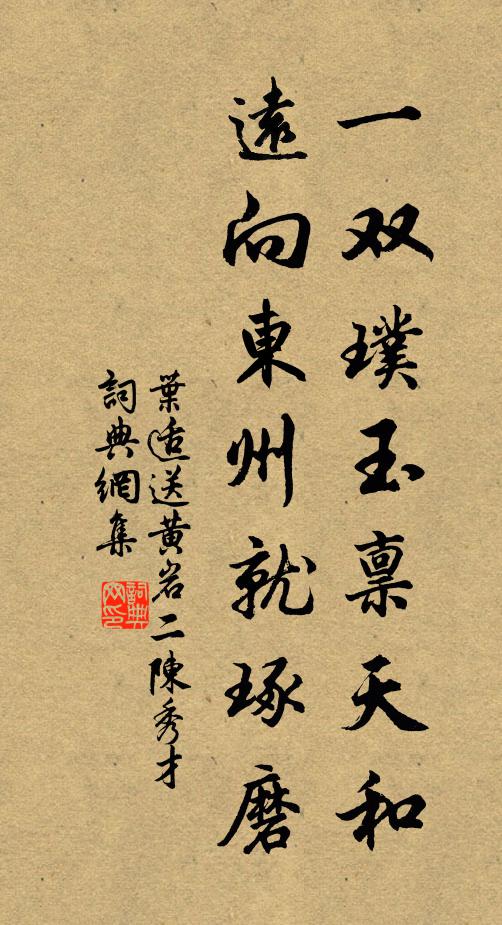 一双璞玉禀天和
遠向東州就琢磨
葉适送黄岩二陳秀才
詞典網集
詞典网印